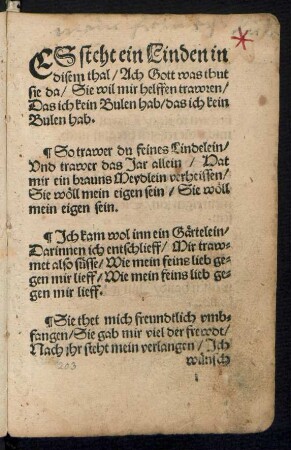 ES steht ein Linden in
disem thal / Ach Gott was thut
sie da / Sie wil mir helffen trawren /
Das ich kein Bulen hab / das ich kein
Bulen hab.
¶ So trawer du feines Lindelein /
Vnd trawer das Jar allein / Hat
mir ein brauns Meydlein verheissen /
Sie wöll mein eigen sein / Sie wöll
mein eigen sein.
¶ Ich kam wol inn ein Gärtelein /
Darinnen ich entschlieff / Mir traw-
met also süsse / Wie mein feins lieb ge-
gen mir lieff / Wie mein feins lieb ge-
gen mir lieff.
¶ Sie thet mich freundtlich vmb-
fangen / Sie gab mir viel der frewdt /
Nach jhr steht mein verlangen / Ich
wünsch
203